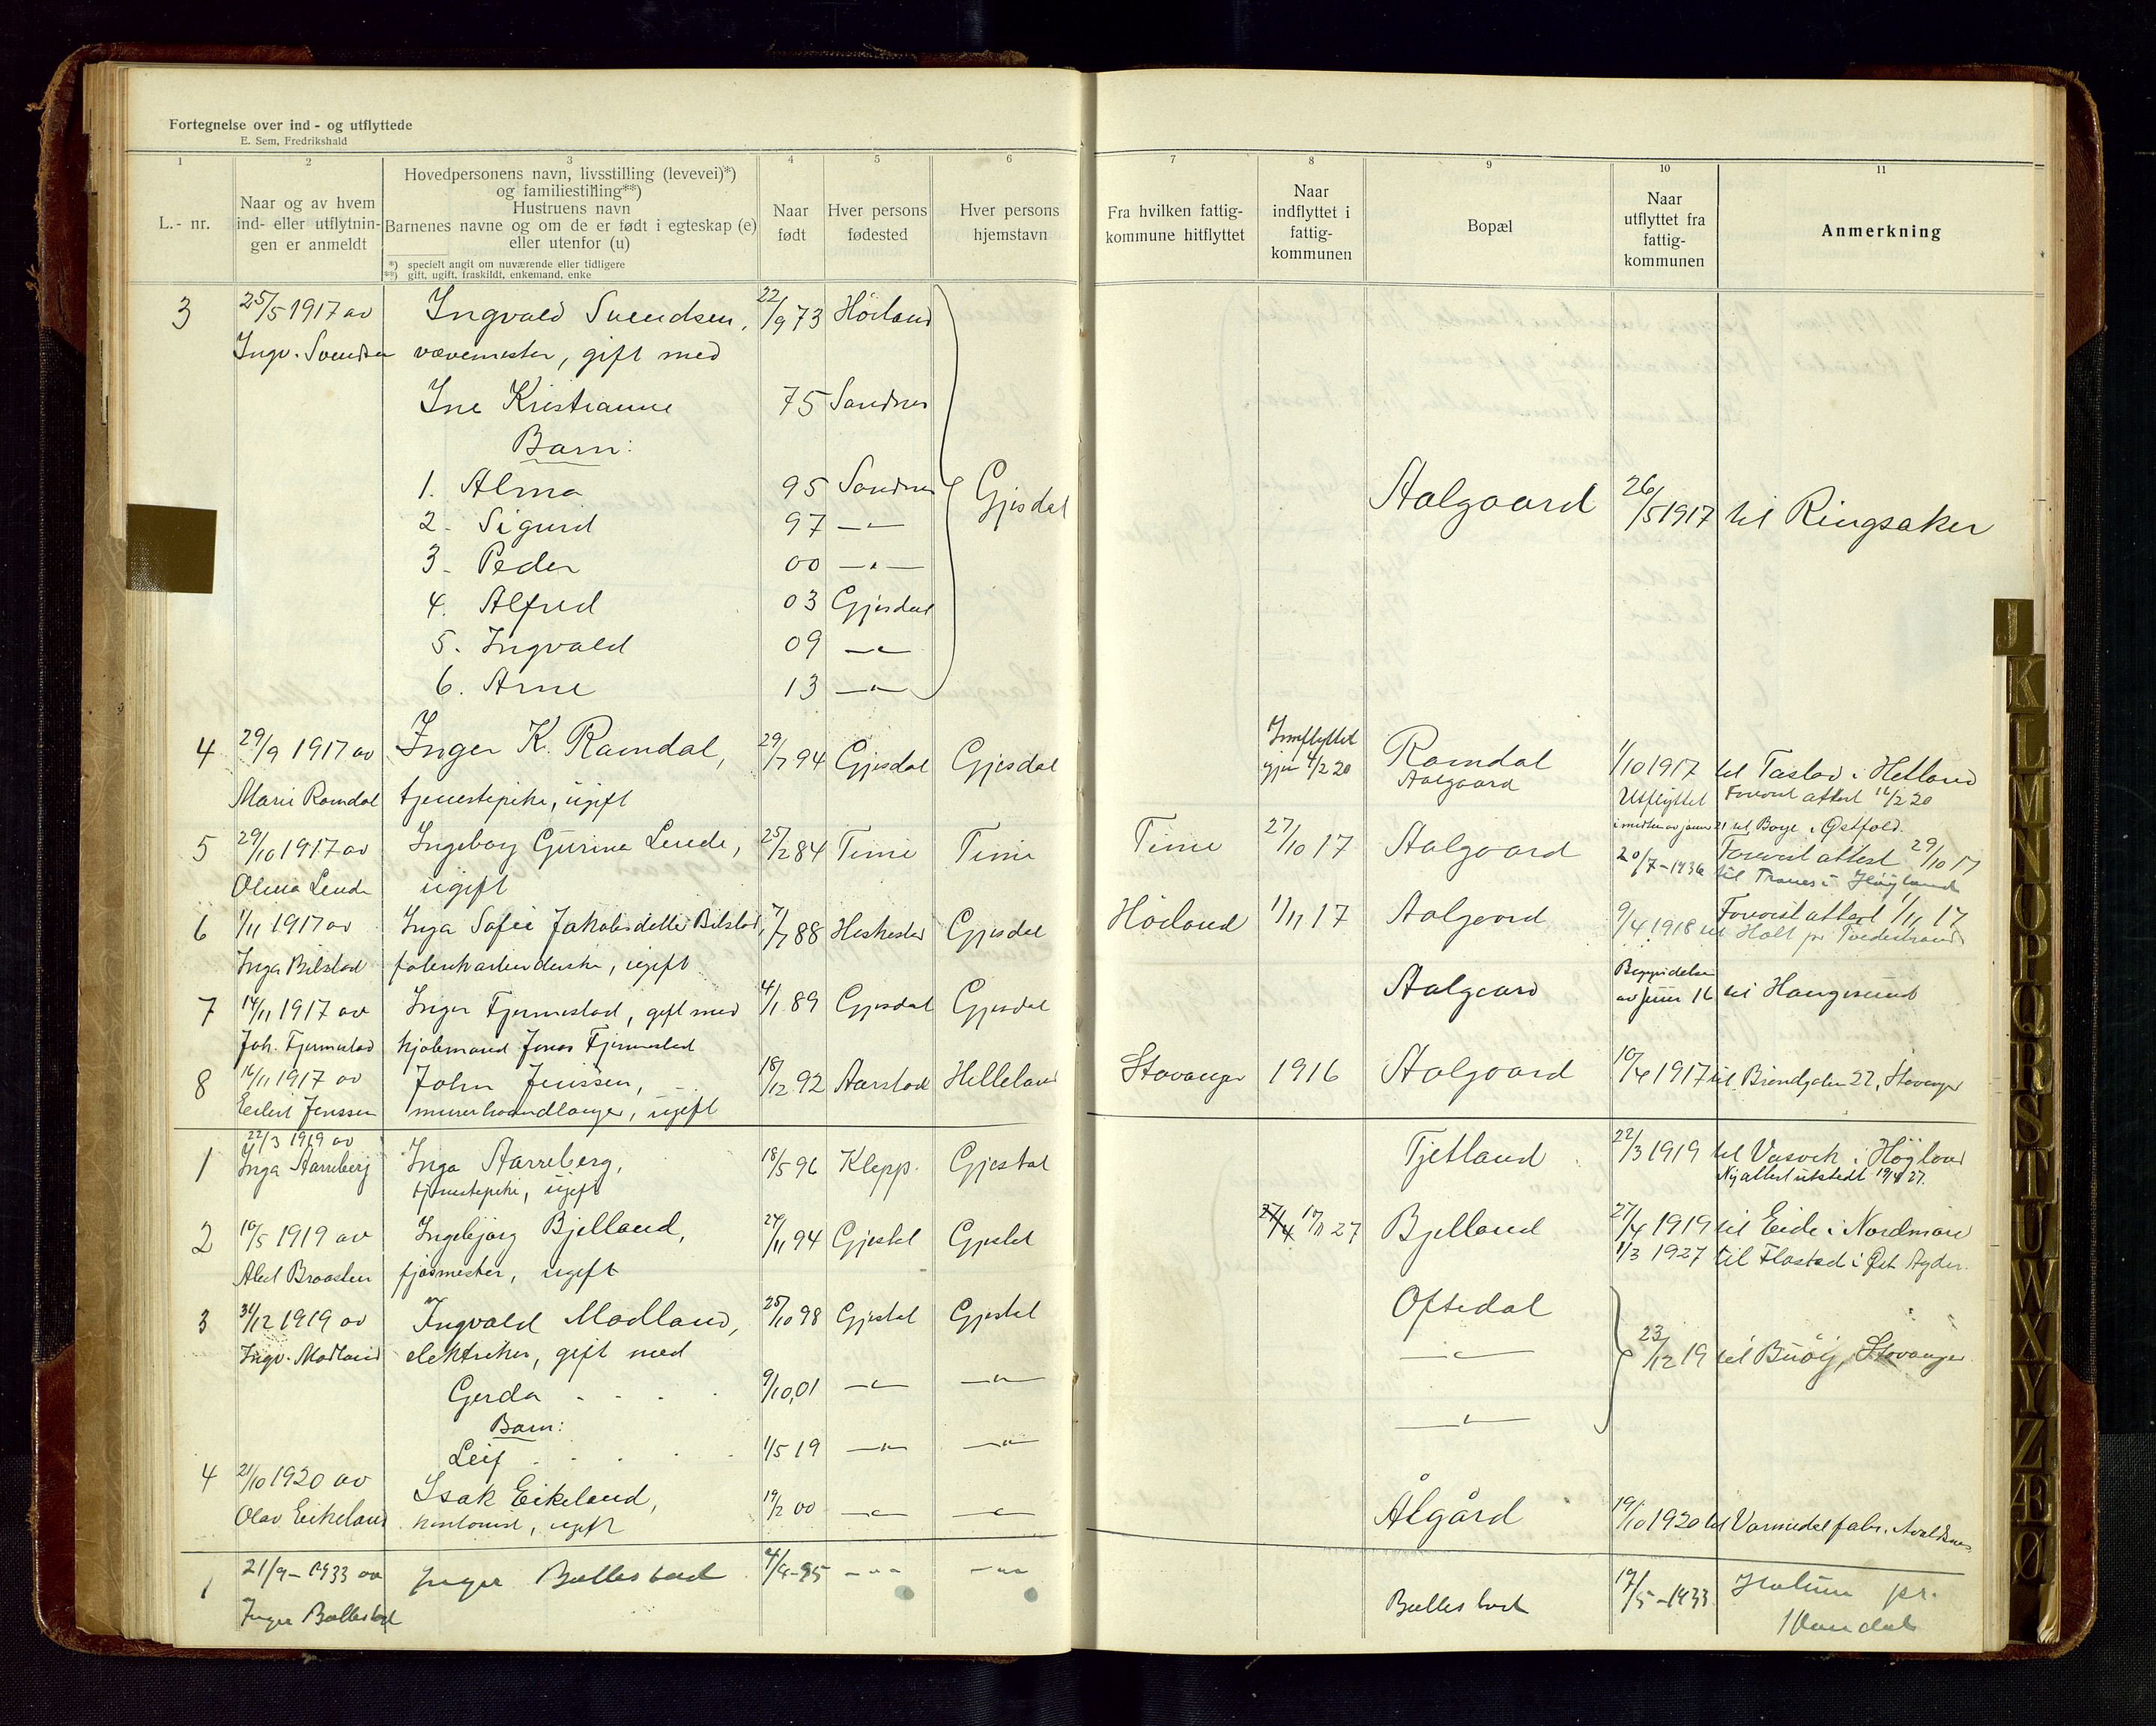 Fortegnelse over ind- og utflyttede
E. Sem, Fredrikshald
1 2 3 4 5 6 7 8 9 10 11
L.-nr.
Naar og av hvem
ind- eller utflytnin-
gen er anmeldt
Hovedpersonens navn, livsstilling (levevei)*)
og familiestilling**)
Hustruens navn
Barnenes navne og om de er født i egteskap (e)
eller utenfor (u)
*) specielt angit om nuværende eller tidligere
**) gift, ugift, fraskildt, enkemand, enke
Naar
født
Hver persons
fødested
Hver persons
hjemstavn
Fra hvilken fattig-
kommune hitflyttet
Naar
indflyttet i
fattig-
kommunen
Bopæl
Naar
utflyttet fra
fattig-
kommunen
Anmerkning
3 25/5 1917 av Ingvald Svendsen, 22/9 73 Höiland
Ingv. Svendsen vævemester, gift med
Ine Kristianne 75 Sandnes
Barn:
1. Alma 95 Sandnes Gjesdal Aalgaard 26/5 1917 til Ringsaker
2. Sigurd 97 —"—
3. Peder 00 —"—
4. Alfred 03 Gjesdal
5. Ingvald 09 —"—
6. Arne 13 —"—
4 29/9 1917 av Inger K. Ramdal, 29/7 94 Gjesdal Gjesdal Innflyttet Ramdal 1/10 1917 til Tastad i Hetland
Marie Ramdal tjenestepike, ugift igjen 4/2 20 Aalgaard Utflyttet Forevist attest 16/2 20
i midten av januar 21 til Borge i Østfold.
5 29/10 1917 av Ingeborg Gurine Lende, 25/2 84 Time Time Time 27/10 17 Aalgaard Forevist attest 29/10 17
Olena Lende ugift 20/7-1936 til Tranes i Høyland
6 1/11 1917 av Inga Sofie Jakobsdatter Bilstad, 7/7 88 Heskestad Gjesdal Höiland 1/11 17 Aalgaard Forevist attest 1/11 17
Inga Bilstad fabrikarbeiderske, ugift 9/4 1918 til Holt pr Tvedestrand
7 14/11 1917 av Inger Fjermestad, gift med 4/1 89 Gjesdal Gjesdal Aalgaard Begyndelsen av juni 16 til Haugesund
Joh. Fjermestad kjøbmand Jonas Fjermestad
8 16/11 1917 av John Jenssen, 18/12 92 Aarstad Helleland Stavanger 1916 Aalgaard 10/4 1917 til Brøndgaten 22, Stavanger
Eilert Jenssen murerhaandlanger, ugift
1 22/3 1919 av
Inga Aarreberg Inga Aarreberg, 18/5 96 Klepp. Gjestal Tjetland 22/3 1919 til Vasvik i Høyland
tjenestepike, ugift Ny attest utstedt 19/4 27.
2 10/5 1919 av Ingebjørg Bjelland, 24/11 94 Gjestal Gjestal 17/11 27 Bjelland 27/4 1919 til Eide i Nordmøre
Abel Braasten fjøsmester, ugift 1/3 1927 til Flostad i Øst Agder.
3 31/12 1919 av Ingvald Madland, 25/10 98 Gjestal Gjestal Oftedal
Ingv. Madland elektriker, gift med —"— 23/12 19 til Buøy, Stavanger
Gerda 9/10,01 —"— —"—
Barn: —"—
Leif 1/5 19 —"— —"—
4 21/10 1920 av Isak Eikeland, 19/2 00 —"— —"— Ålgård 19/10 1920 til Varmedal fabr. Avaldsnes
Olav Eikeland kontorist, ugift
1 21/9-1933 av Inger Ballestad 4/9-95 —"— —"— Ballestad 19/5-1933 Holum pr.
Inger Ballestad Mandal
J
K
L
M
N
O
P
Q
R
S
T
U
W
X
Y
Z
Æ
Ø